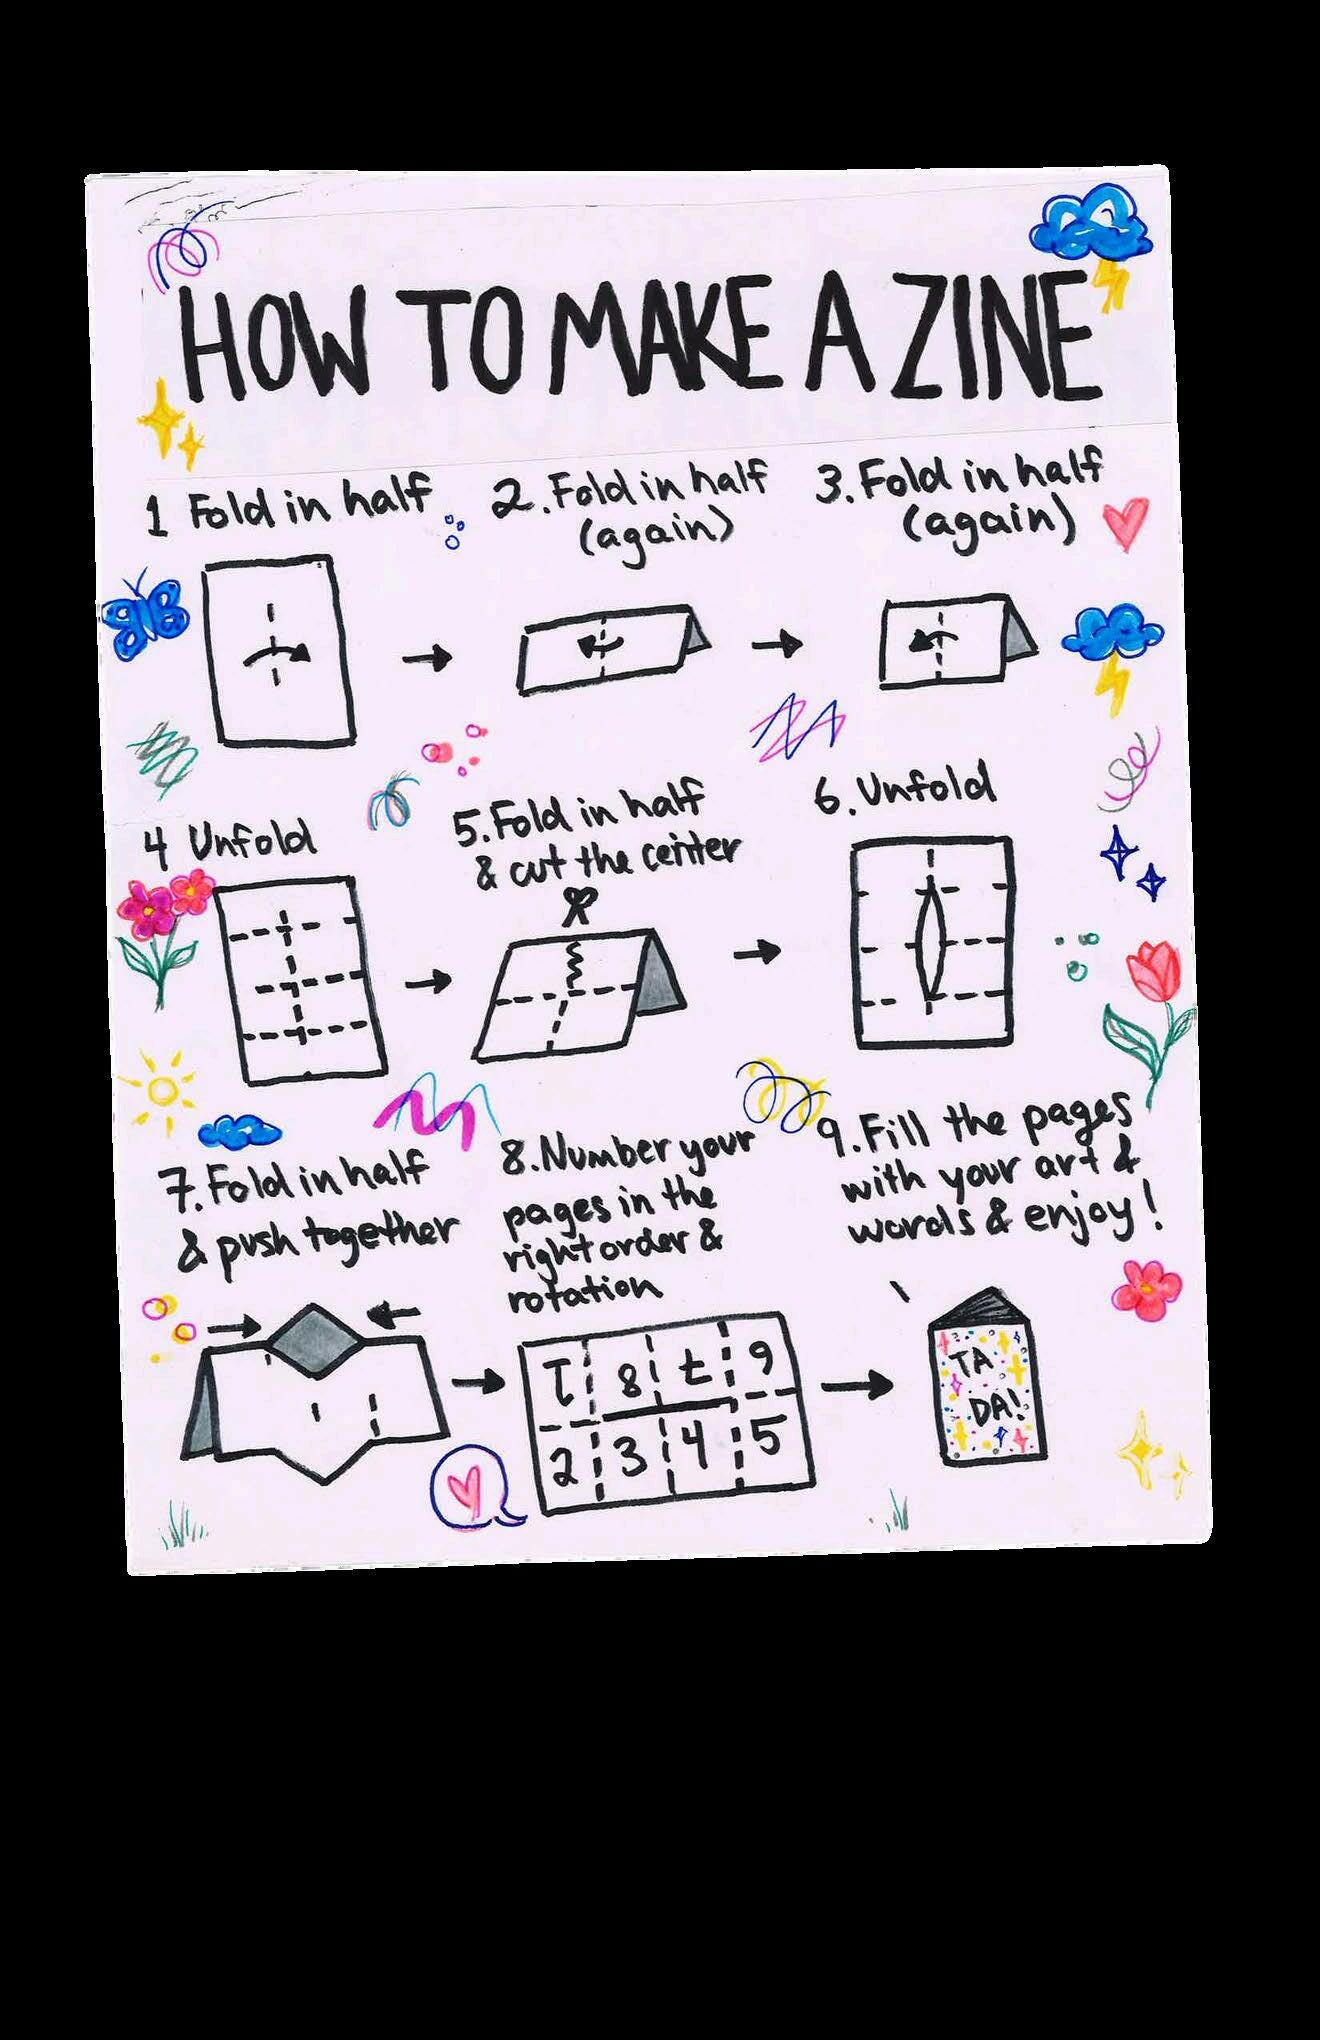 HOW TO MAKE A ZINE
1 Fold in half
2. Fold in half
(again)
3. Fold in half
(again)
4 Unfold
5. Fold in half
& cut the center
6. Unfold
7. Fold in half
& push together
8. Number your
pages in the
right order &
rotation
9. Fill the pages
with your art &
words & enjoy!
1 8 7 6
2 3 4 5
TA
DA!